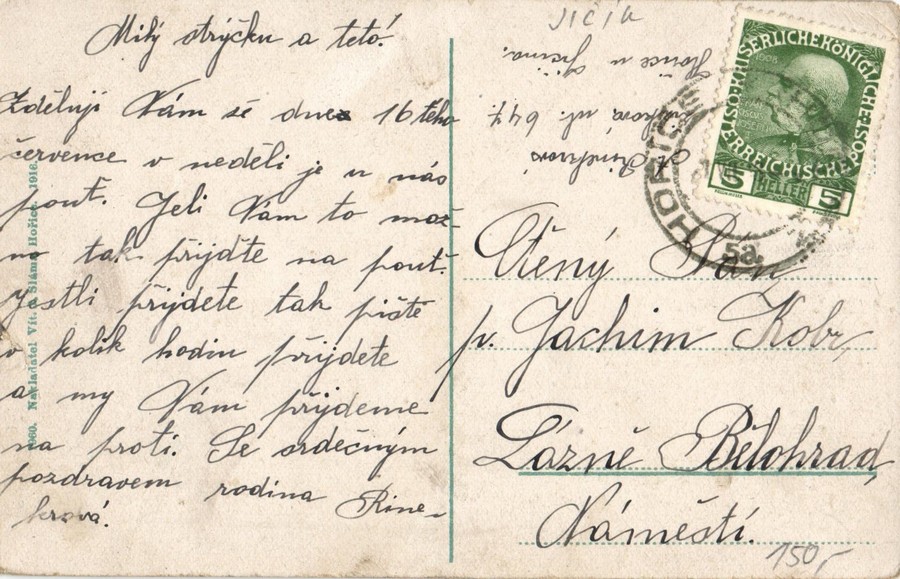 Milý strýčku a teto!
Zděluji Vám se dnes 16 tého
července v neděli je u nás
pouť. Jeli Vám to mož-
no tak přijdťe na pouť.
Jestli přijdete tak pište
v kolik hodin přijdete
a my Vám přijdeme
na proti. Se srdečným
pozdravem rodina Rine-
krová.
Nakladatel Vít. Sláma Hořice. 1916.
JIČÍN
Hořice u Jičína.
ul. 647.
KAISERLICHE KÖNIGLICHE ÖSTERREICHISCHE POST
1908
5 HELLER 5
HOŘICE
5a
Ctěný Pán
p. Jachim Kobr
Lázně Bělohrad,
Náměstí.
150,-